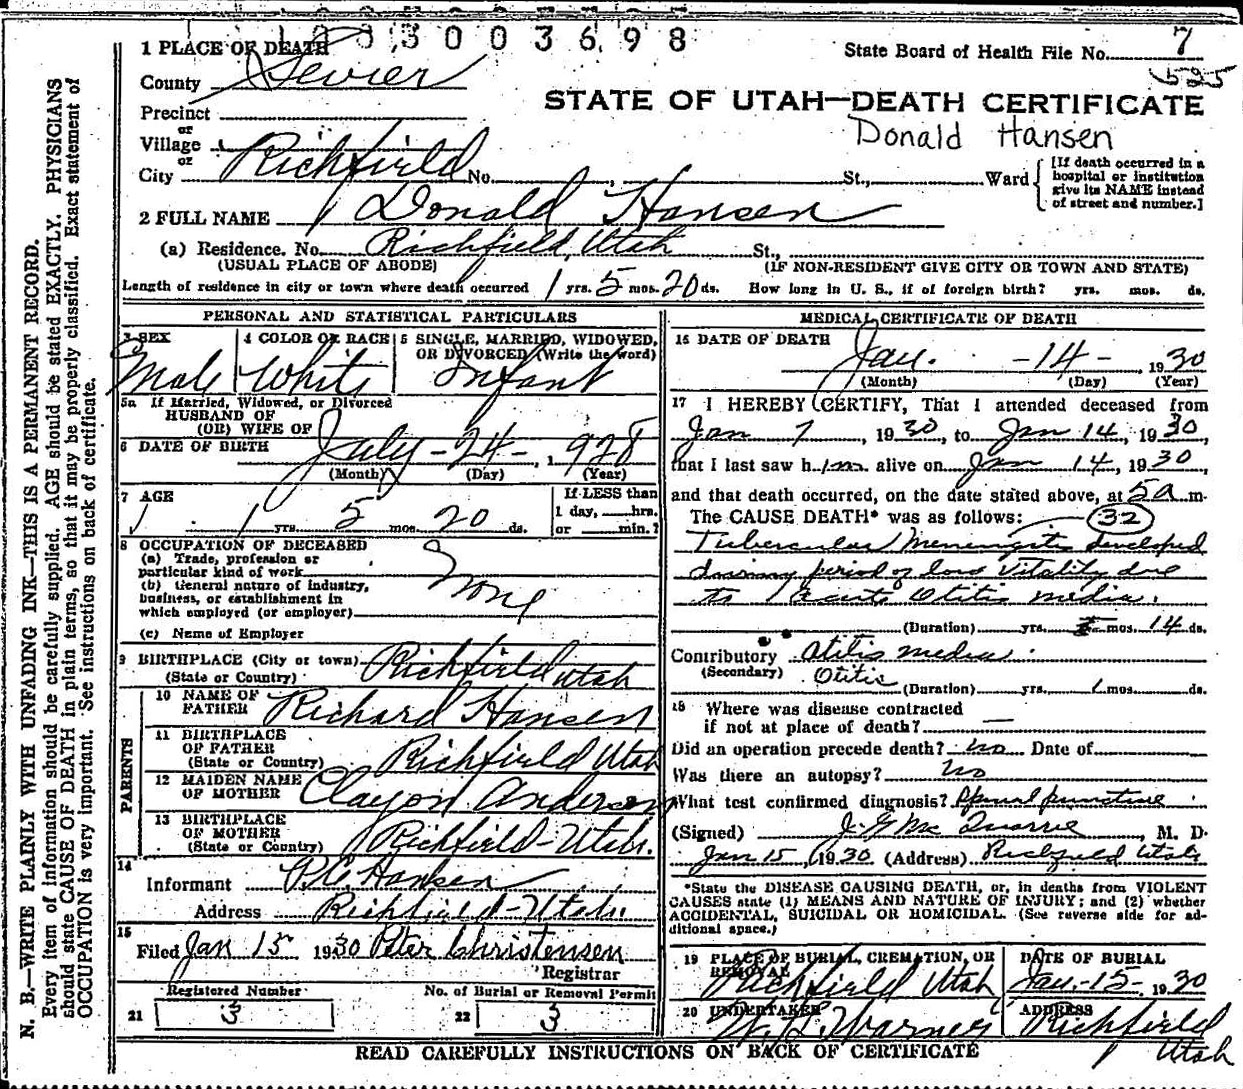 3 0 0 3 6 9 8
1 PLACE OF DEATH
State Board of Health File No. 7
525
County Sevier
STATE OF UTAH—DEATH CERTIFICATE
Precinct
or
Donald Hansen
Village
or
City Richfield No. , St., Ward
[If death occurred in a
hospital or institution
give its NAME instead
of street and number.]
2 FULL NAME Donald Hansen
(a) Residence. No. Richfield, Utah St.,
(USUAL PLACE OF ABODE)
(IF NON-RESIDENT GIVE CITY OR TOWN AND STATE)
Length of residence in city or town where death occurred 1 yrs. 5 mos. 20 ds. How long in U. S., if of foreign birth? yrs. mos. ds.
PERSONAL AND STATISTICAL PARTICULARS
3 SEX
Male
4 COLOR OR RACE
White
5 SINGLE, MARRIED, WIDOWED,
OR DIVORCED (Write the word)
Infant
5a If Married, Widowed, or Divorced
HUSBAND OF
(OR) WIFE OF
6 DATE OF BIRTH July - 24 - , 1928
(Month) (Day) (Year)
7 AGE
1 yrs. 5 mos. 20 ds.
If LESS than
1 day, hrs.
or min.?
8 OCCUPATION OF DECEASED
(a) Trade, profession or
particular kind of work
(b) General nature of industry,
business, or establishment in
which employed (or employer)
None
(c) Name of Employer
9 BIRTHPLACE (City or town) Richfield
(State or Country) Utah
PARENTS
10 NAME OF
FATHER Richard Hansen
11 BIRTHPLACE
OF FATHER
(State or Country) Richfield Utah
12 MAIDEN NAME
OF MOTHER Anderson
13 BIRTHPLACE
OF MOTHER
(State or Country) Richfield - Utah.
14
Informant Hansen
Address Richfield - Utah.
15
Filed Jan 15 1930 Peter Christensen
Registrar
Registered Number
21 3
No. of Burial or Removal Permit
22 3
MEDICAL CERTIFICATE OF DEATH
16 DATE OF DEATH
Jan. - 14 - , 1930
(Month) (Day) (Year)
17 I HEREBY CERTIFY, That I attended deceased from
Jan 7 , 1930, to Jan 14, 1930,
that I last saw him alive on Jan 14, 1930,
and that death occurred, on the date stated above, at 5 a m.
The CAUSE DEATH* was as follows: 32
Tubercular Meningitis developed
during period of low vitality due
to acute Otitis media.
(Duration) yrs. mos. 14 ds.
Contributory Otitis media
(Secondary) Otitis
(Duration) yrs. 1 mos. ds.
18 Where was disease contracted
if not at place of death? —
Did an operation precede death? no Date of
Was there an autopsy? no
What test confirmed diagnosis? Spinal puncture
(Signed) J. G. Mc Quarrie, M. D.
Jan 15, 1930 (Address) Richfield Utah
*State the DISEASE CAUSING DEATH, or, in deaths from VIOLENT
CAUSES state (1) MEANS AND NATURE OF INJURY; and (2) whether
ACCIDENTAL, SUICIDAL OR HOMICIDAL. (See reverse side for ad-
ditional space.)
19 PLACE OF BURIAL, CREMATION, OR
REMOVAL
Richfield Utah
DATE OF BURIAL
Jan. - 15 - 1930
20 UNDERTAKER
Warner
ADDRESS
Richfield
Utah
READ CAREFULLY INSTRUCTIONS ON BACK OF CERTIFICATE
N. B.—WRITE PLAINLY WITH UNFADING INK—THIS IS A PERMANENT RECORD.
Every item of information should be carefully supplied. AGE should be stated EXACTLY. PHYSICIANS
should state CAUSE OF DEATH in plain terms, so that it may be properly classified. Exact statement of
OCCUPATION is very important. See instructions on back of certificate.